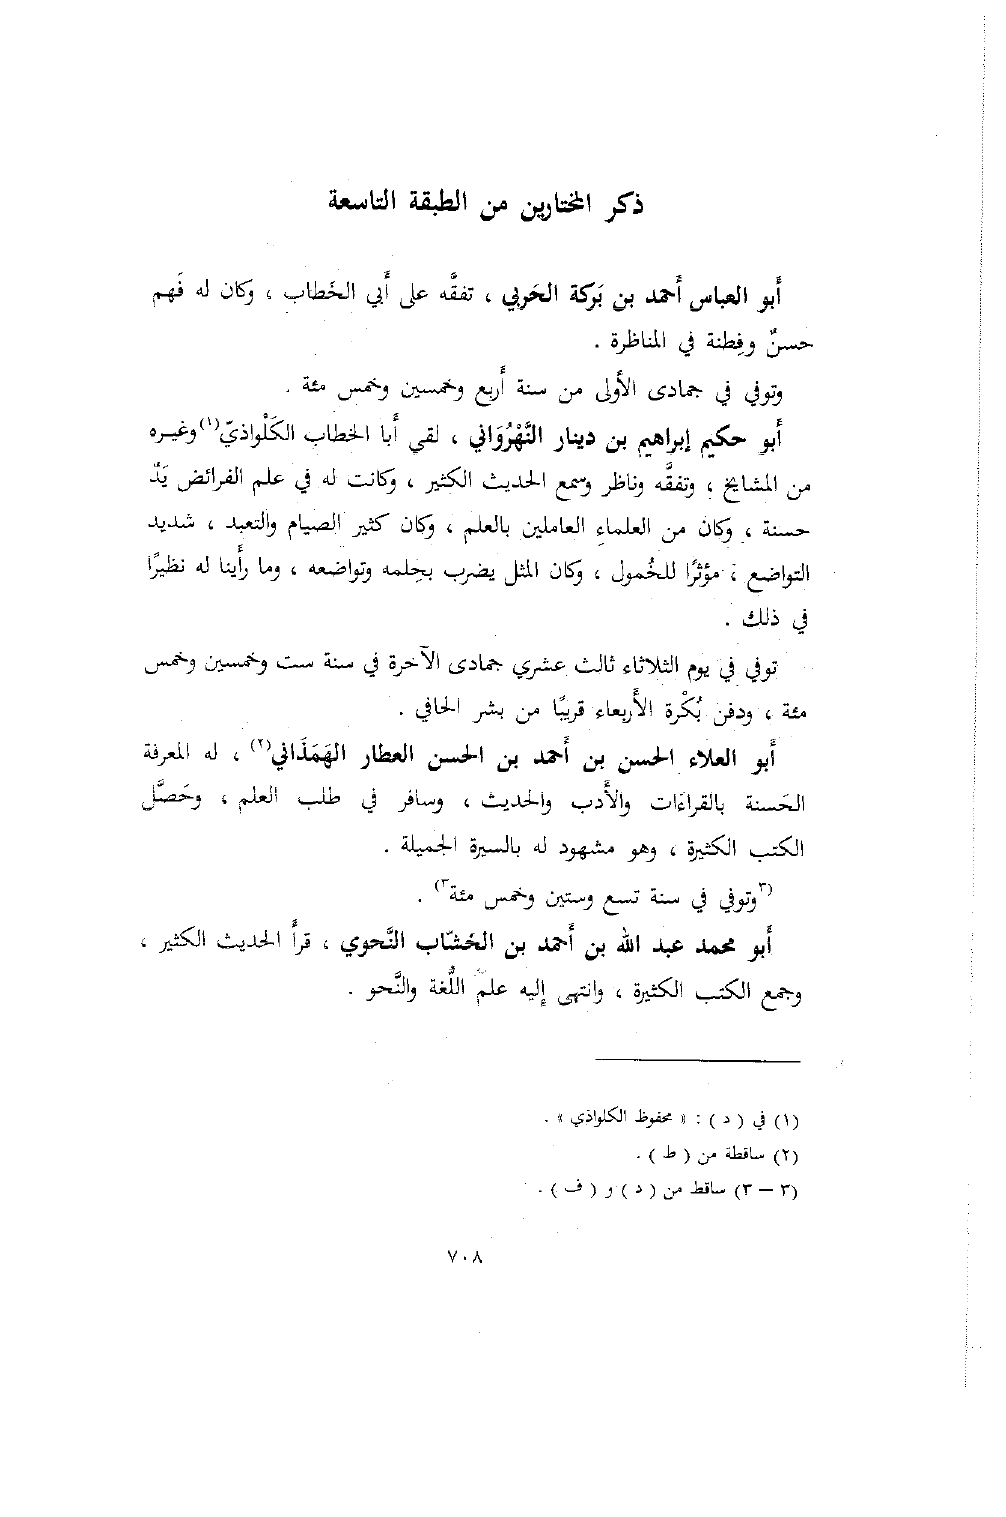 ذكر المختارين من الطبقة التاسعة
أبو العباس أحمد بن بَركة الحَربي ، تفقَّه على أبي الخَطاب ، وكان له فَهم
حسنٌ وفِطنة في المناظرة .
وتوفي في جمادى الأولى من سنة أَربع وخمسين وخمس مئة .
أبو حكيم إبراهيم بن دينار النَّهْرُوَاني ، لقي أَبا الخطاب الكَلْواذيّ(١) وغيره
من المشايخ ، وتفقَّه وناظر وسمع الحديث الكثير ، وكانت له في علم الفرائض يَدٌ
حسنة ، وكان من العلماءِ العاملين بالعلم ، وكان كثير الصيام والتعبد ، شديد
التواضع ، مؤثرًا للخُمول ، وكان المثل يضرب بحِلمه وتواضعه ، وما رأَينا له نظيرًا
في ذلك .
توفي في يوم الثلاثاء ثالث عشري جمادى الآخرة في سنة ست وخمسين وخمس
مئة ، ودفن بُكْرة الأَربعاء قريبًا من بشر الحافي .
أبو العلاء الحسن بن أَحمد بن الحسن العطار الهَمَذَاني(٢) ، له المعرفة
الحَسنة بالقراءَات والأَدب والحديث ، وسافر في طلب العلم ، وحَصَّل
الكتب الكثيرة ، وهو مشهود له بالسيرة الجميلة .
(٣وتوفي في سنة تسع وستين وخمس مئة٣) .
أَبو محمد عبد الله بن أَحمد بن الخشّاب النَّحوي ، قرأَ الحديث الكثير ،
وجمع الكتب الكثيرة ، وانتهى إليه علمَ اللُّغة والنَّحو .
(١) في ( د ) : « محفوظ الكلواذي » .
(٢) ساقطة من ( ط ) .
(٣ – ٣) ساقط من ( د ) و ( ف ) .
٧٠٨